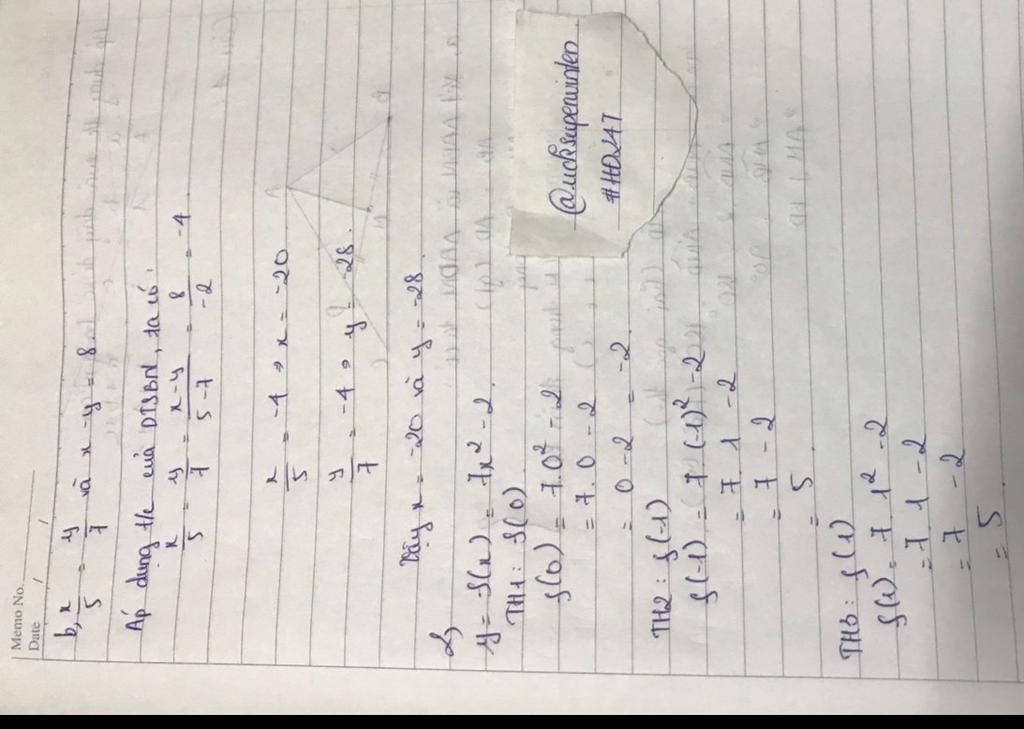 Memo No.
Date / /
b, x/5 = y/7 và x - y = 8.
Áp dụng t/c của DTSBN, ta có:
x/5 = y/7 = x-y/5-7 = 8/-2 = -4
x/5 = -4 => x = -20
y/7 = -4 => y = -28.
Vậy x = -20 và y = -28
2,
y = f(x) = 7x² - 2
TH1: f(0)
f(0) = 7.0² - 2
= 7.0 - 2
= 0 - 2 = -2
TH2: f(-1)
f(-1) = 7.(-1)² - 2
= 7.1 - 2
= 7 - 2
= 5
TH3: f(1)
f(1) = 7.1² - 2
= 7.1 - 2
= 7 - 2
= 5
#HD247